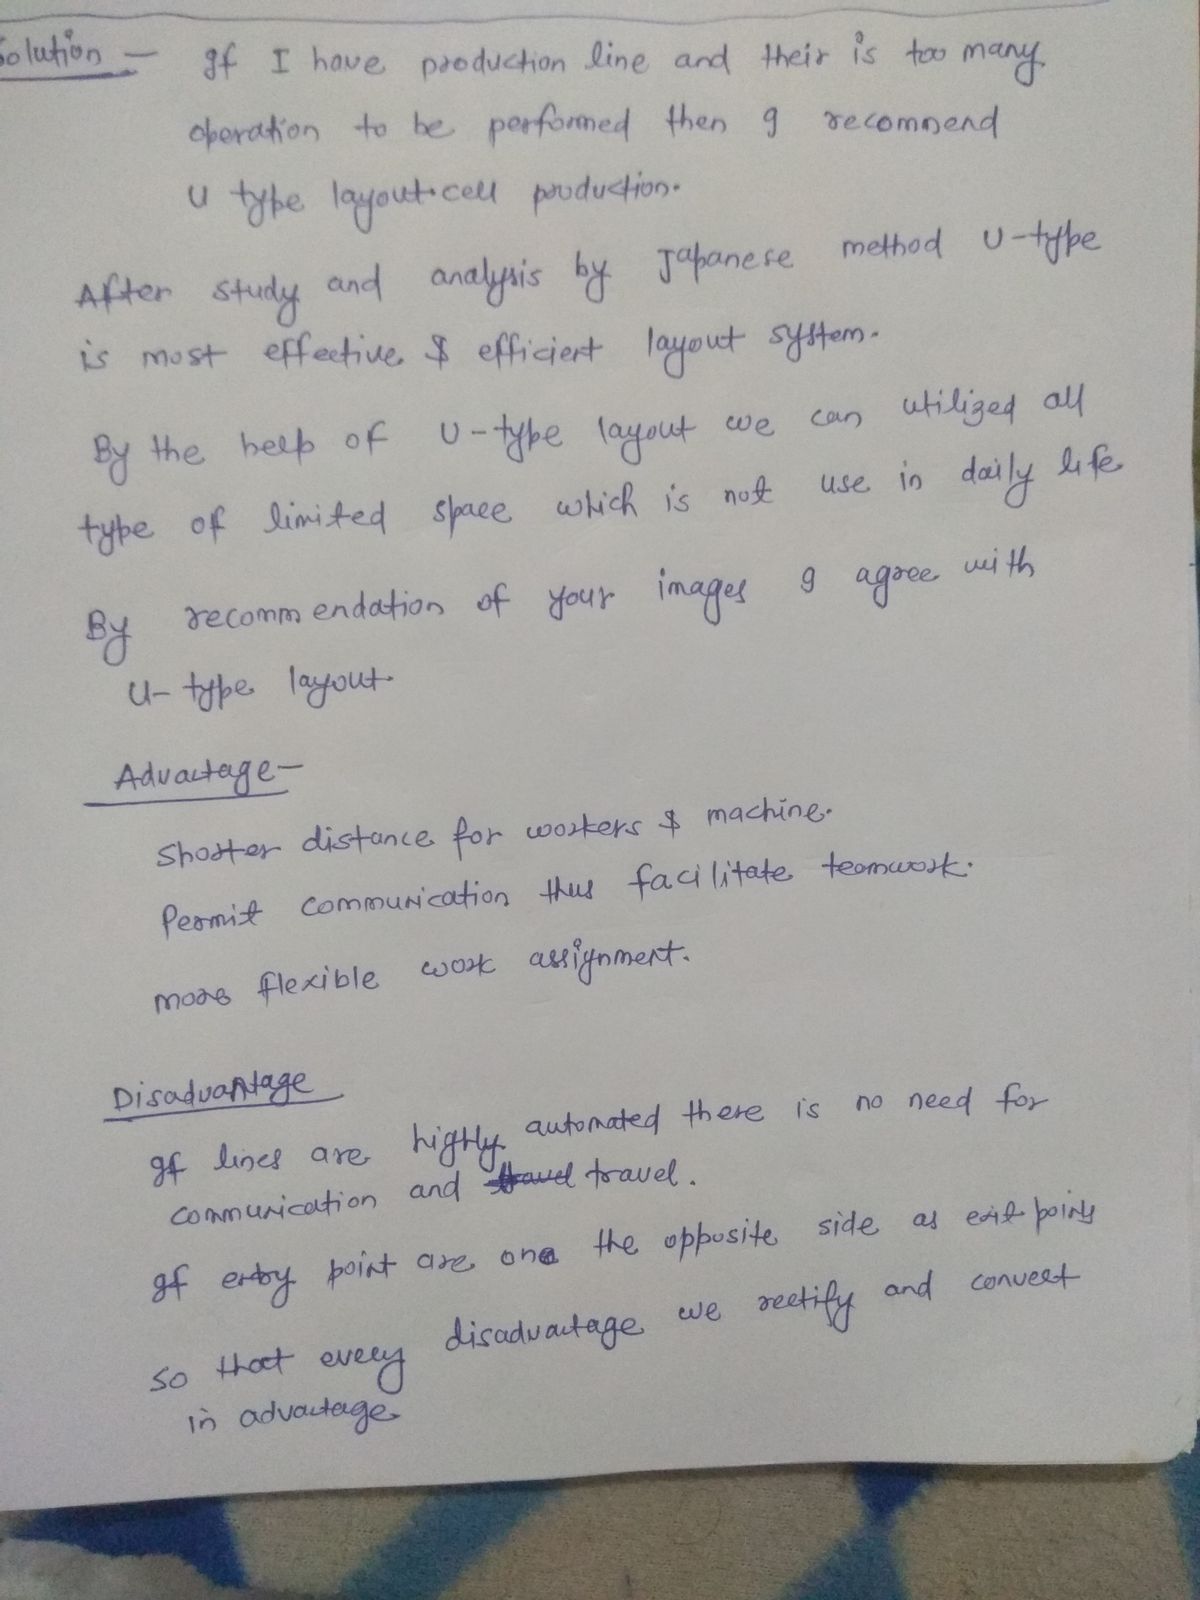 Solution - If I have production line and their is too many
operation to be performed then I recommend
U type layout cell production.
After study and analysis by Japanese method U-type
is most effective & efficient layout system.
By the help of U-type layout we can utilized all
type of limited space which is not use in daily life
By recommendation of your images I agree with
U-type layout.
Advantage-
Shorter distance for workers & machine.
Permit communication thus facilitate teamwork.
more flexible work assignment.
Disadvantage
If lines are highly automated there is no need for
communication and travel.
If entry point are one the opposite side as exit points
so that every disadvantage we rectify and convert
in advantage